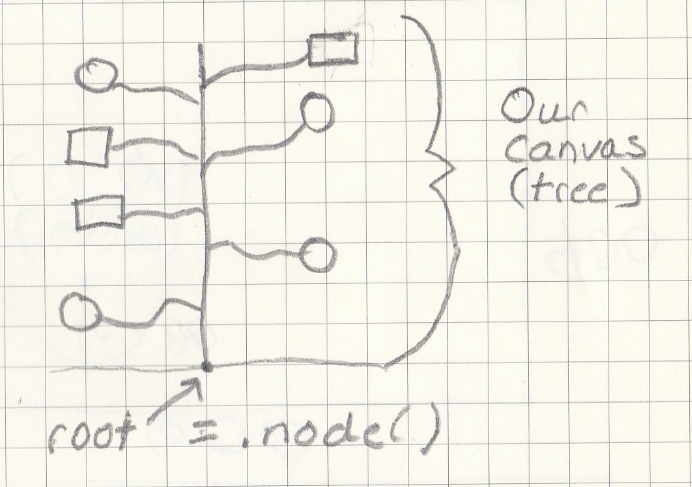 Our
Canvas
(tree)
root = .node()